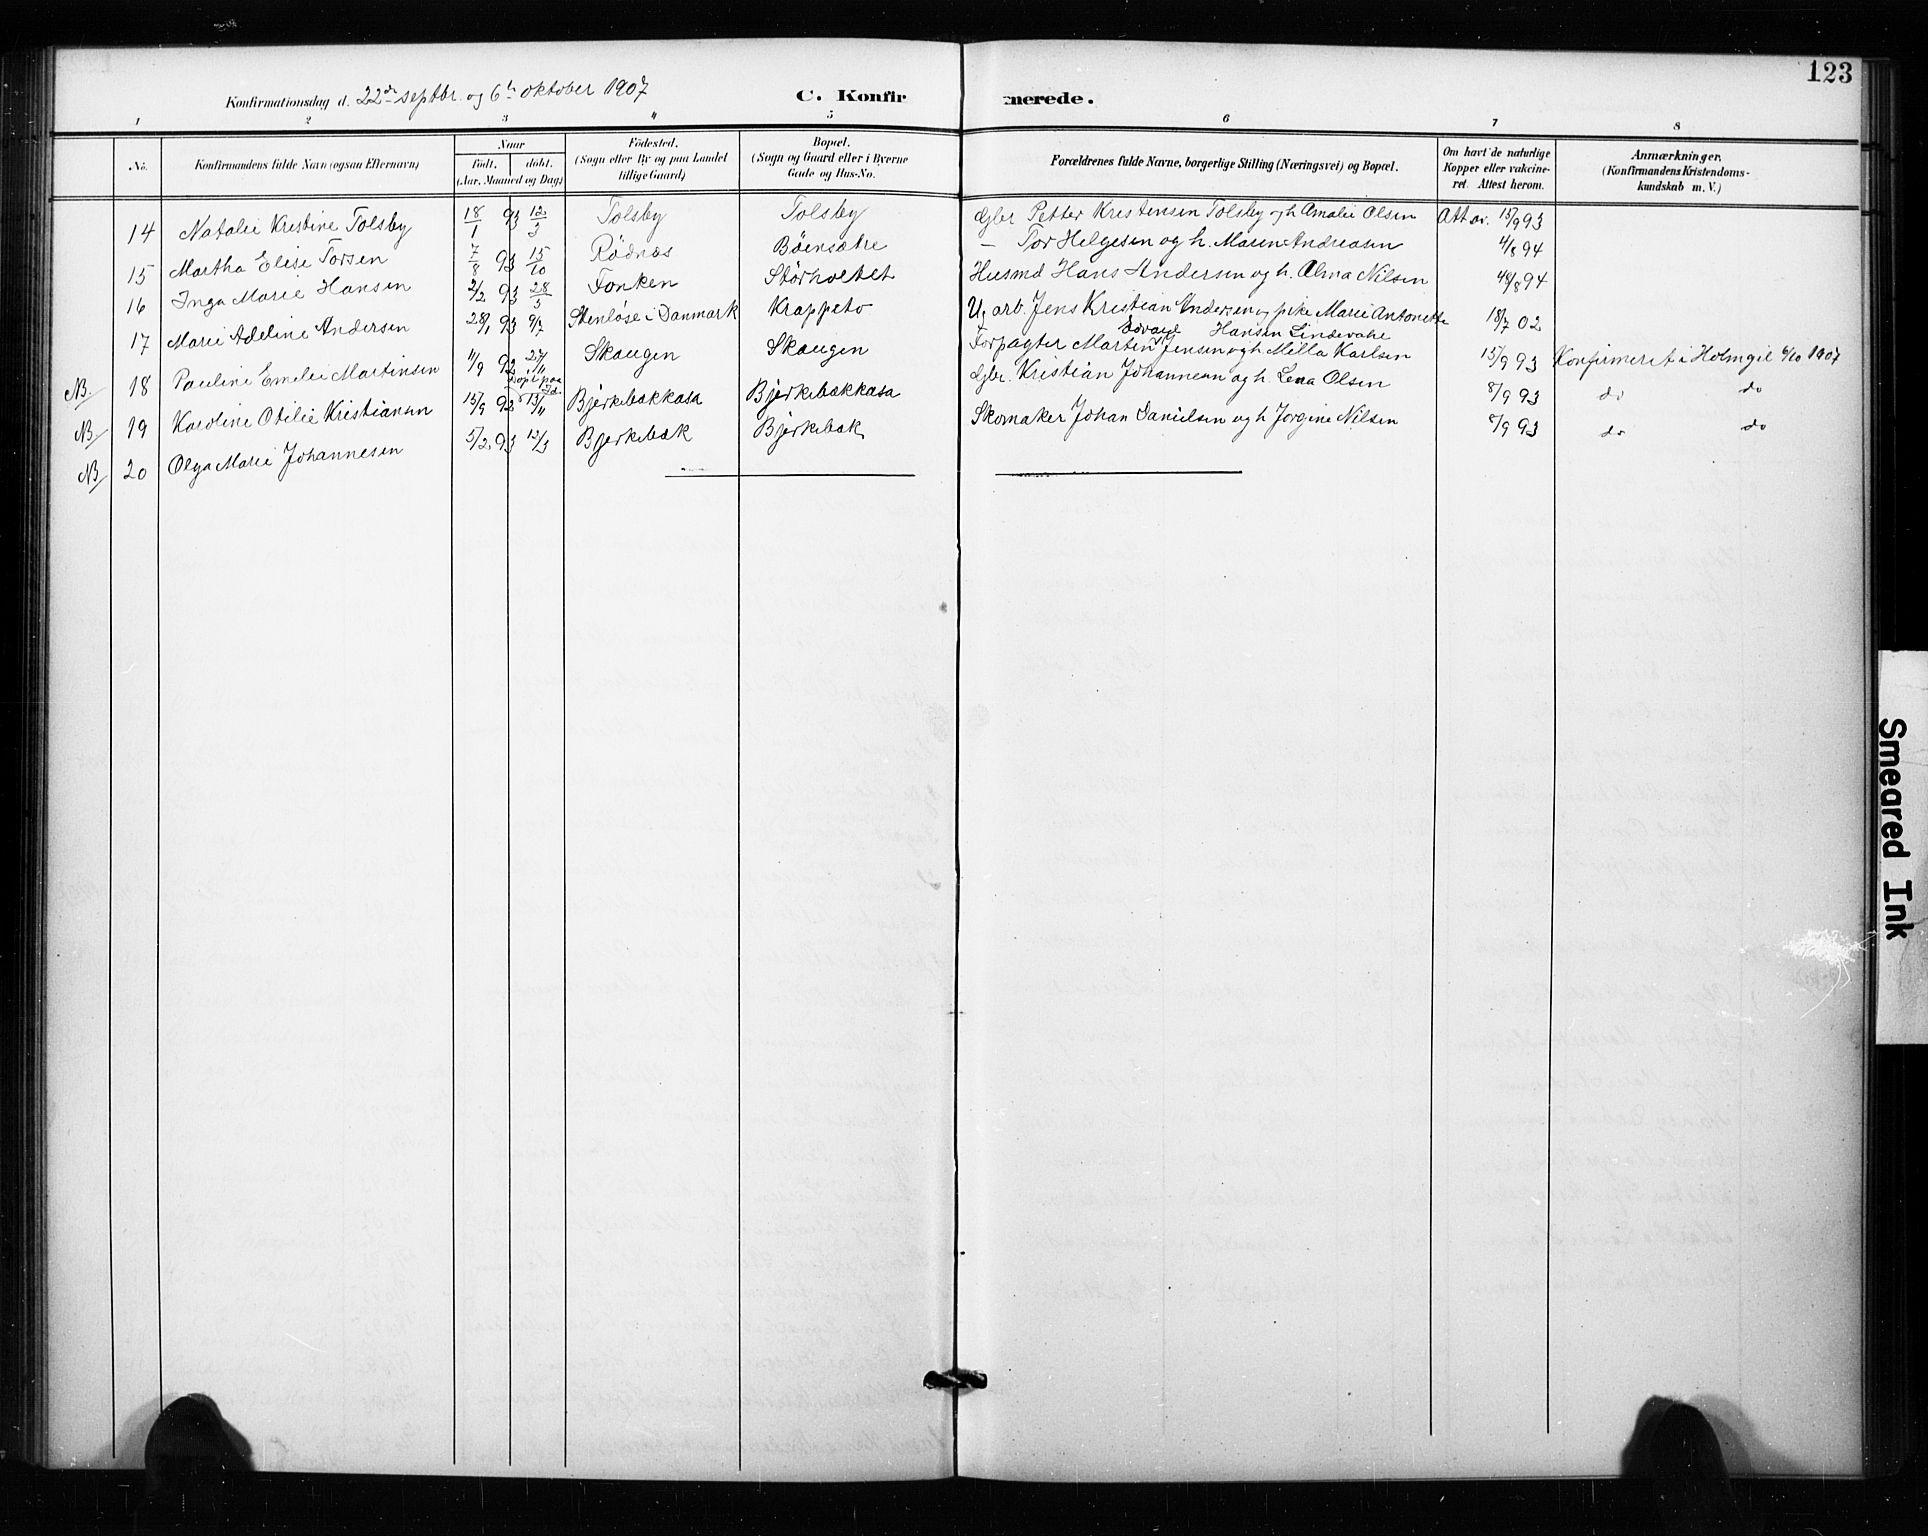 123
Konfirmationsdag d. 22de septbr. og 6te oktober 1907 C. Konfirmerede.
1 2 3 4 5 6 7 8
No. Konfirmandens fulde Navn (ogsaa Efternavn) Naar født. døbt. (Aar, Maaned og Dag) Fødested. (Sogn eller By og paa Landet tillige Gaard) Bopæl. (Sogn og Gaard eller i Byerne Gade og Hus-No. Forældrenes fulde Navne, borgerlige Stilling (Næringsvei) og Bopæl. Om havt de naturlige Kopper eller vakcineret. Attest herom. Anmærkninger. (Konfirmandens Kristendomskundskab m. V.)
14 Natalie Kristine Tolsby 18/1 93 12/3 Tolsby Tolsby Gbr Petter Kristensen Tolsby og h. Amalie Olsen Att av. 15/9 93
15 Martha Elise Torsen 7/8 93 15/10 Rødnæs Bøensætre – Tor Helgesen og h. Maren Andreasen 4/8 94
16 Inga Marie Hansen 2/2 93 28/5 Fonken Størholtet Husmd Hans Andersen og h. Alma Nilsen 4/8 94
17 Marie Adeline Andersen 28/1 93 9/7 Stenløse i Danmark Krappeto U. arb. Jens Kristian Andersen og pike Marie Antonette Hansen Lindevahe 18/7 02
NB. 18 Pauline Emelie Martinsen 11/9 92 27/11 Skaugen Skaugen Forpagter Martin Edvard Jensen og h. Milla Karlsen 15/9 93 Konfirmeret i Holmgil 6/10 1907
NB/ 19 Karoline Otilie Kristiansen 15/9 92 døpt paa 13/11 Bjerkebækkasa Bjerkebækkasa Gbr. Kristian Johannesen og h. Lena Olsen 8/9 93 do do
NB/ 20 Olga Marie Johannesen 5/2 93 12/3 Bjerkebæk Bjerkebæk Skomaker Johan Danielsen og h Jorgine Nilsen 8/9 93 do do
Smeared Ink